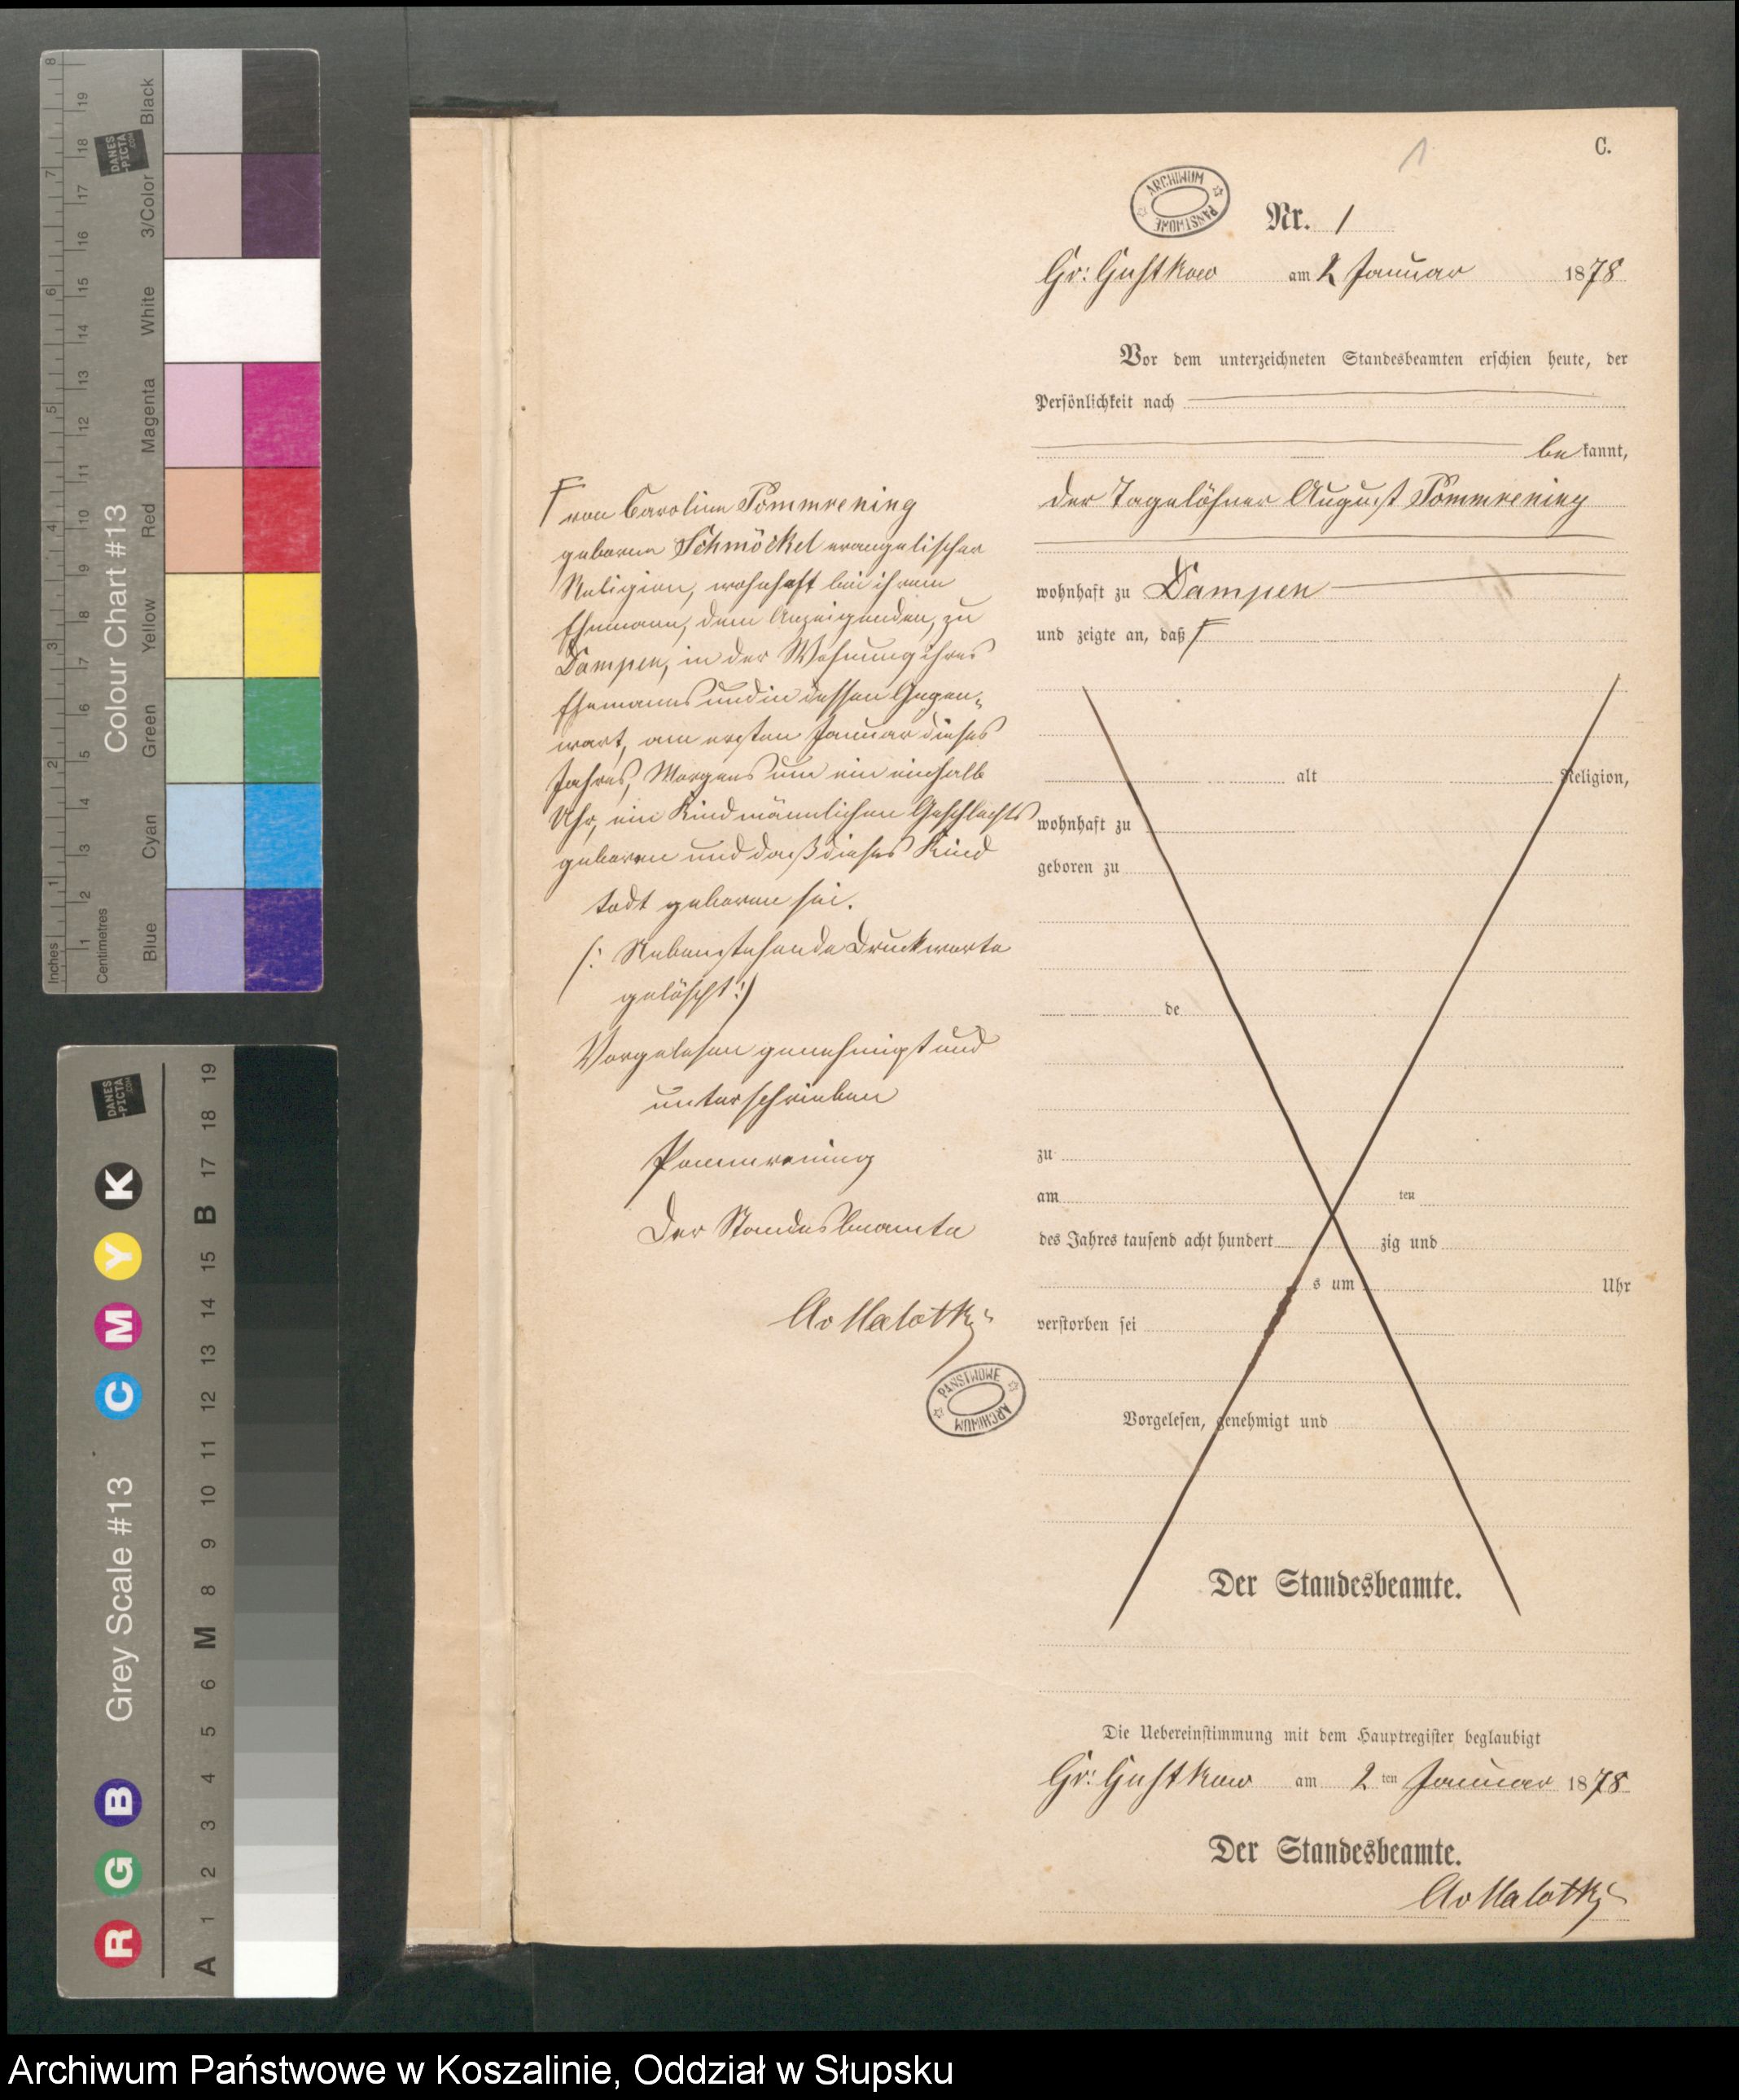 C.
1
ARCHIWUM PAŃSTWOWE
Nr. 1
Gr: Gustkow am 2 Januar 1878
Vor dem unterzeichneten Standesbeamten erschien heute, der
Persönlichkeit nach
be kannt,
der Tagelöhner August Pommrening
wohnhaft zu Dampen
und zeigte an, daß F
alt Religion,
wohnhaft zu
geboren zu
de
zu
am ten
des Jahres tausend acht hundert zig und
s um Uhr
verstorben sei
Vorgelesen, genehmigt und
Der Standesbeamte.
Die Uebereinstimmung mit dem Hauptregister beglaubigt
Gr: Gustkow am 2 ten Januar 1878
Der Standesbeamte.
Av Malottki
F von Caroline Pommrening
geborne Schmöckel evangelischer
Religion, wohnhaft bei ihrem
Ehemann, dem Anzeigenden, zu
Dampen, in der Wohnung ihres
Ehemannes und in dessen Gegen-
wart, am ersten Januar dieses
Jahres, Morgens um ein einhalb
Uhr, ein Kind männlichen Geschlechts
geboren und daß dieses Kind
todt geboren sei.
(: Nebenstehende Druckworte
gelöscht :)
Vorgelesen genehmigt und
unterschrieben
Pommrening
Der Standesbeamte
Av Malottki
PAŃSTWOWE ARCHIWUM
Inches
Centimetres
1 2 3 4 5 6 7 8
1 2 3 4 5 6 7 8 9 10 11 12 13 14 15 16 17 18 19
Colour Chart #13
DANES-PICTA.COM
Blue
Cyan
Green
Yellow
Red
Magenta
White
3/Color
Black
Grey Scale #13
DANES-PICTA.COM
R G B C M Y K
A 1 2 3 4 5 6 M 8 9 10 11 12 13 14 15 B 17 18 19
Archiwum Państwowe w Koszalinie, Oddział w Słupsku